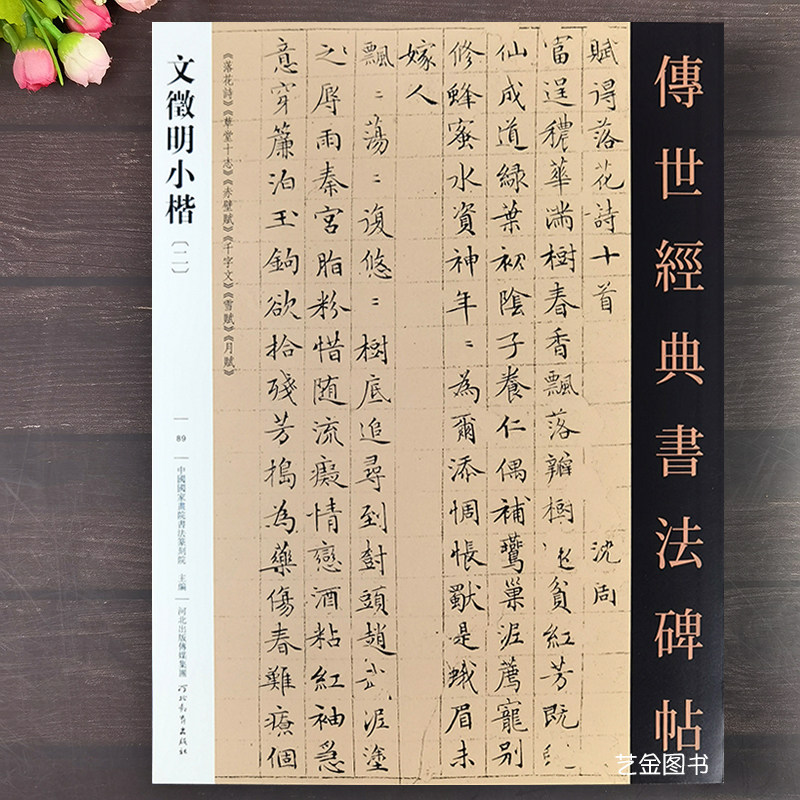 傳世經典書法碑帖
賦得落花詩十首 沈周
富逞穠華滿樹春香飄落瓣樹還貧紅芳既
仙成道綠葉初陰子養仁偶補鶯巢泥薦寵別
修蜂蜜水資神年〻為爾添惆悵獸是蛾眉未
嫁人
飄〻蕩〻復悠〻樹底追尋到樹頭趙武泥塗
之辱雨秦宮脂粉惜随流癡情戀酒粘紅袖急
意穿簾泊玉鉤欲拾殘芳搗為藥傷春難療個
《落花詩》《草堂十志》《赤壁賦》《千字文》《雪賦》《月賦》
文徵明小楷〔二〕
89
中國國家畫院書法篆刻院 主编
河北出版傳媒集團
河北教育出版社
艺金图书